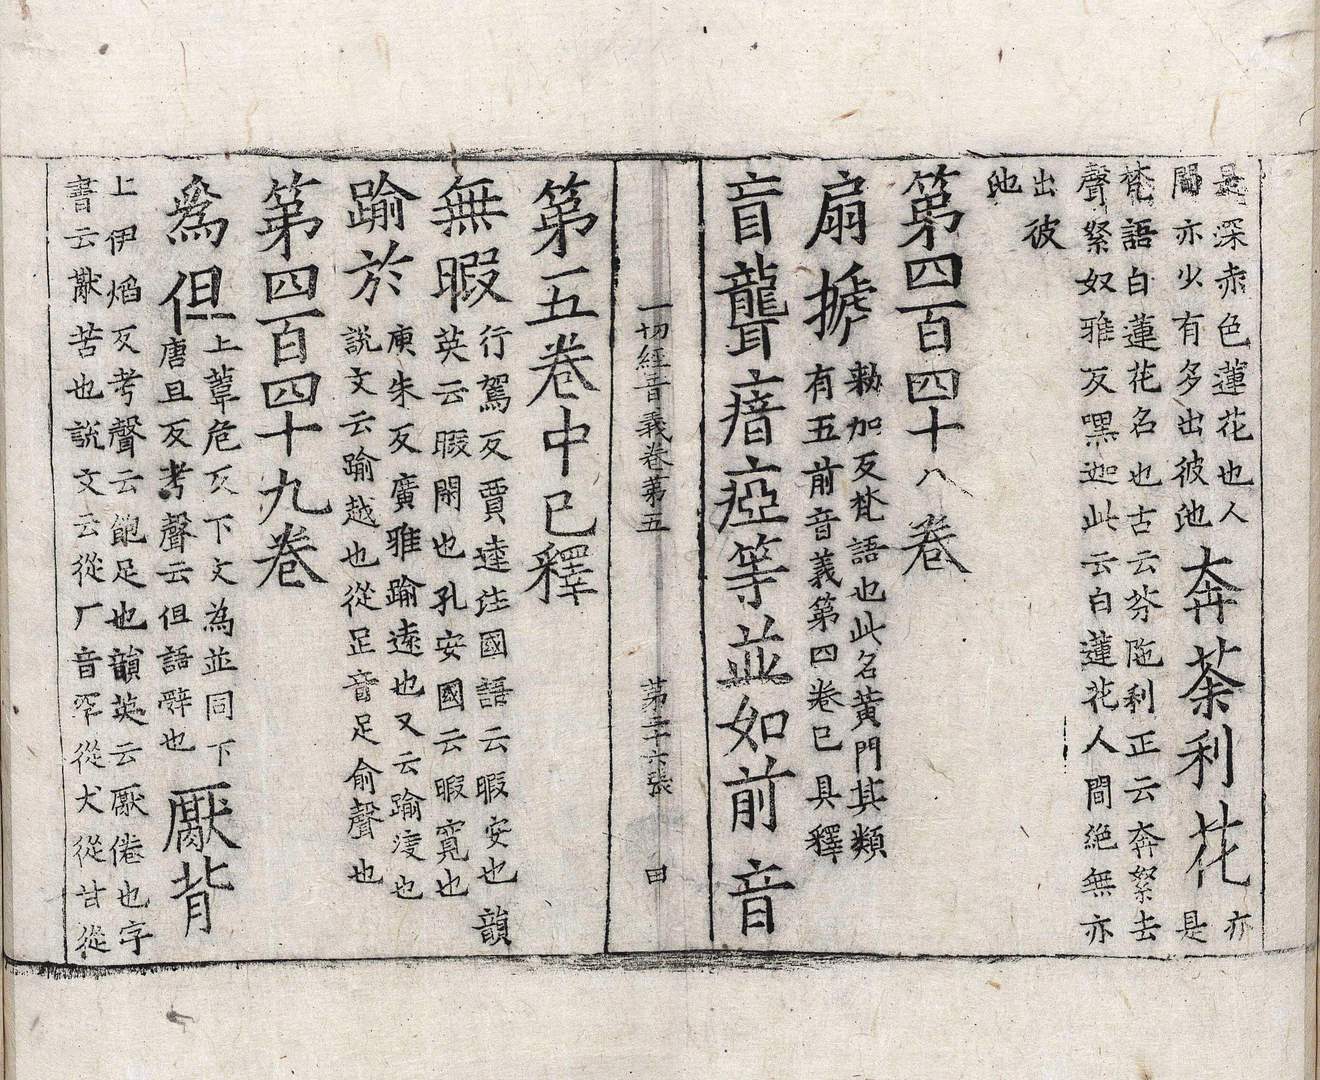 是深赤色蓮花也人
間亦少有多出彼池
奔荼利花
亦
是
梵語白蓮花名也古云芬陁利正云奔絮去
聲絮奴雅反嘿迦此云白蓮花人間絶無亦
出彼
池
第四百四十八卷
扇搋
勑加反梵語也此名黄門其類
有五前音義第四卷已具釋
盲聾瘖瘂等並如前音
一切經音義卷苐五 苐二十六張 田
第五卷中已釋
無暇
行駕反賈逵注國語云暇安也韻
英云暇閑也孔安國云暇寬也
踰於
庾朱反廣雅踰遠也又云踰渡也
說文云踰越也從足音足俞聲也
第四百四十九卷
爲但
上葦危反下文為並同下
唐旦反考聲云但語辭也
厭背
上伊焰反考聲云飽足也韻英云厭倦也字
書云猒苦也說文云從厂音罕從犬從甘從